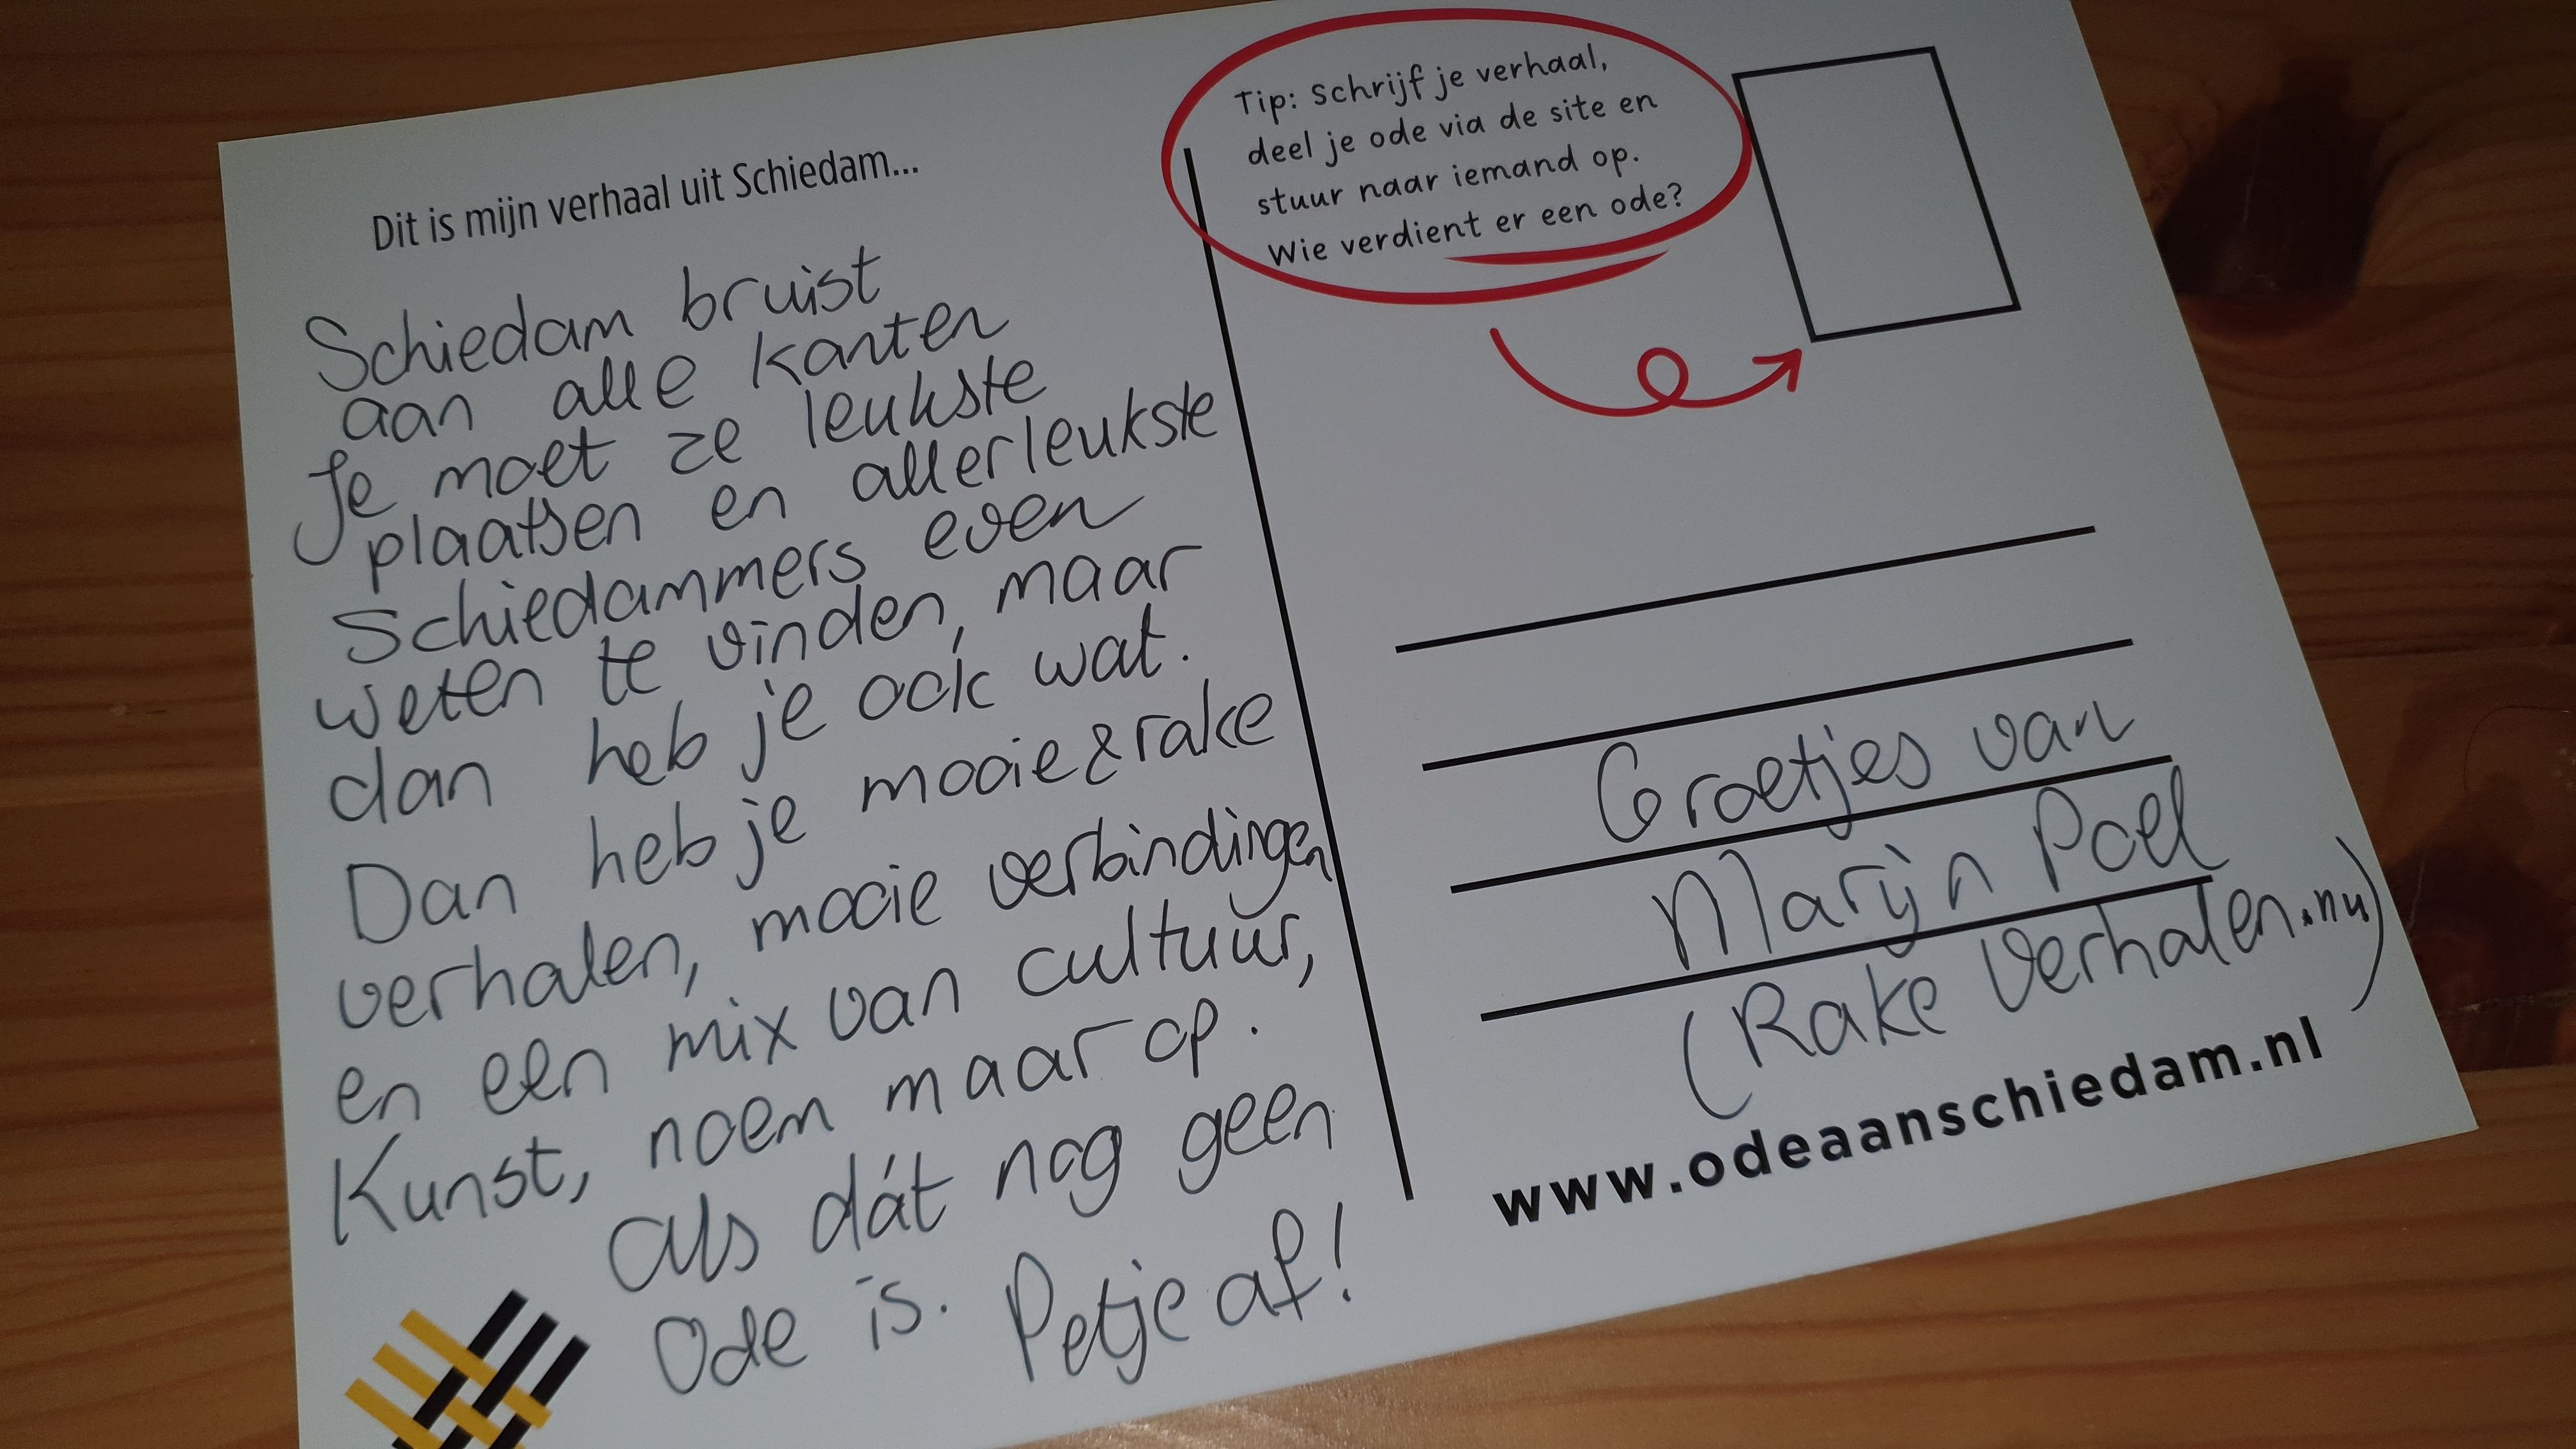 Dit is mijn verhaal uit Schiedam...
Schiedam bruist
aan alle kanten
Je moet ze leukste
plaatsen en allerleukste
Schiedammers even
weten te vinden, maar
dan heb je ook wat.
Dan heb je mooie & rake
verhalen, mooie verbindingen
en een mix van cultuur,
Kunst, noem maar op.
Als dát nog geen
Ode is. Petje af!
Tip: Schrijf je verhaal,
deel je ode via de site en
stuur naar iemand op.
Wie verdient er een ode?
Groetjes van
Marijn Poel
(Rake Verhalen.nu)
www.odeaanschiedam.nl